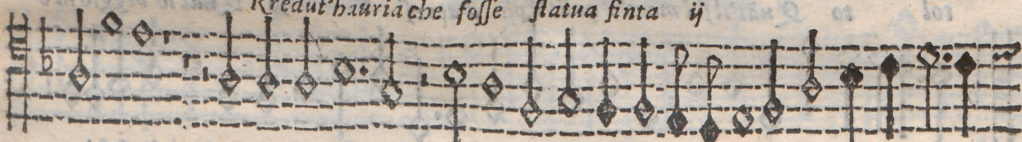 Kredut'hauria che fosse statua finta ij